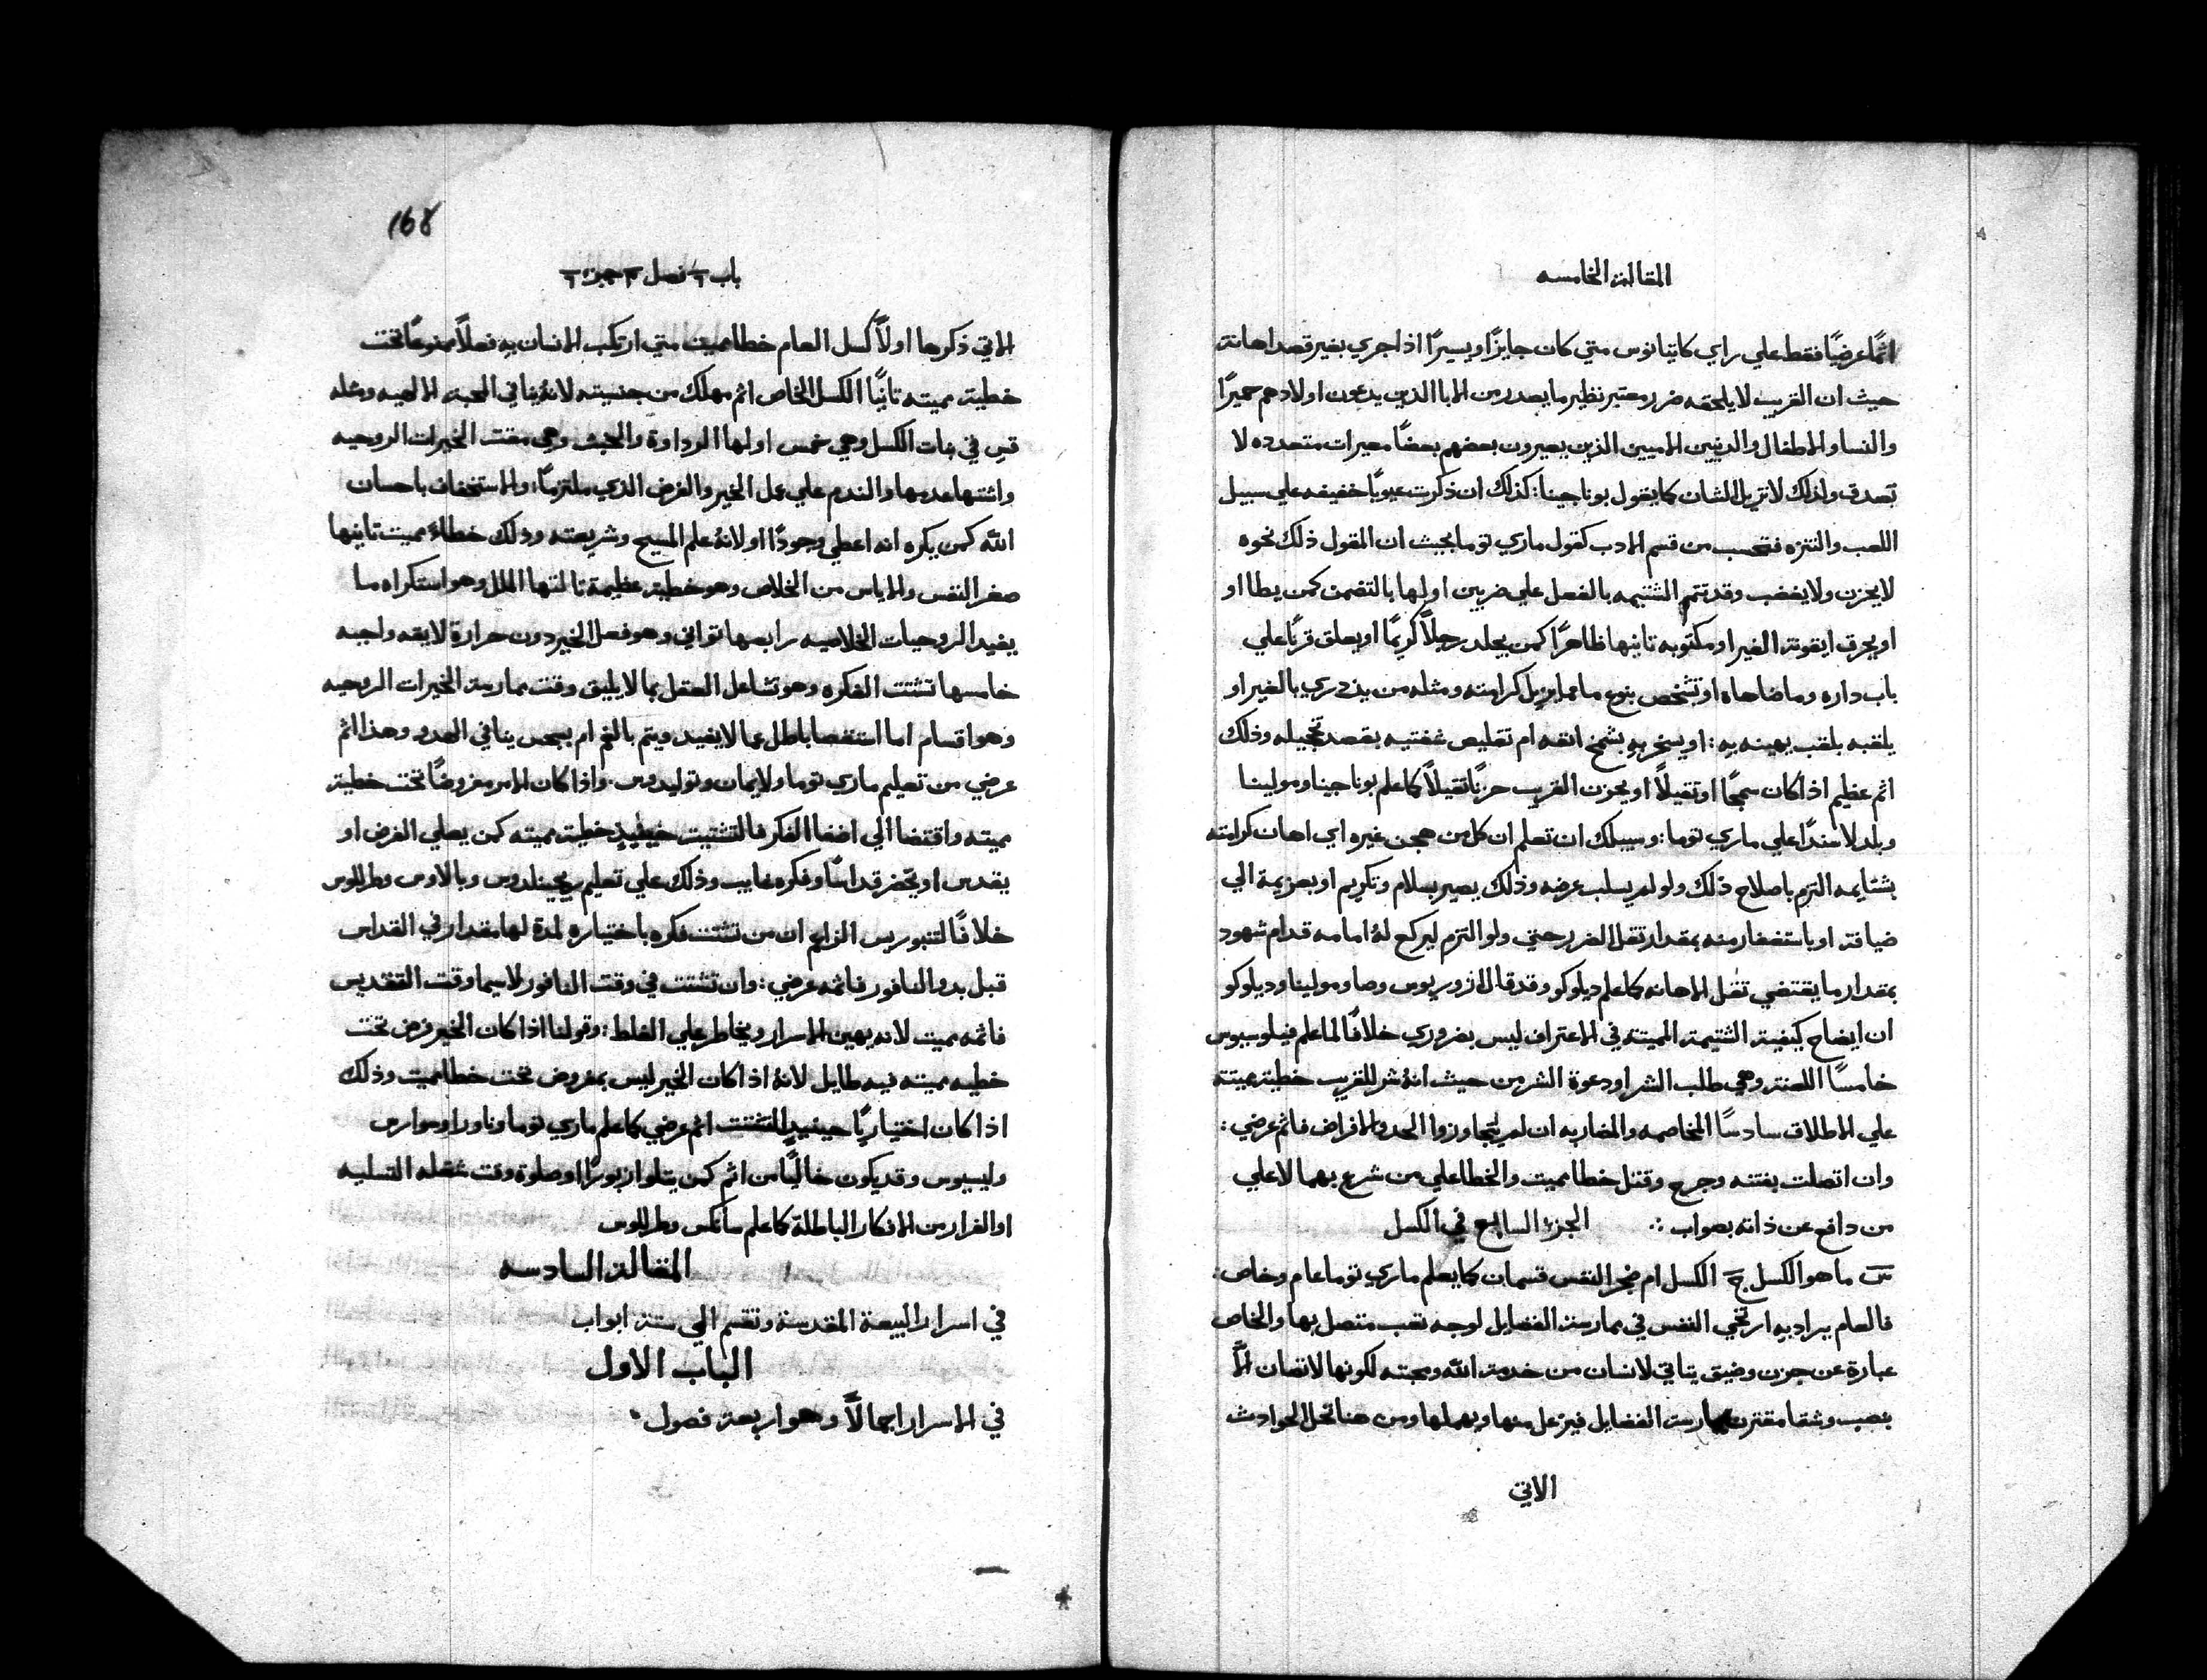 المقالة الخامسه
اثمًا عرضيًا فقط علي راي كاتيانوس متي كان جايزًا ويسيرًا اذا جري بغير قصد اهانة
حيث ان القريب لا يلحقه ضرر معتبر نظير ما يصدر من الابا الذين يدعون اولادهم حميرًا
والنسا والاطفال والدنيين الاميين الذين يعيرون بعضهم بعضًا معيرات متعدده لا
تصدق ولذلك لا تزيل الشان كما يقول بوناجينا: كذلك ان ذكرت عيوبًا خفيفه علي سبيل
اللعب والتنزه فتحسب من قسم الادب كقول ماري توما بحيث ان المقول ذلك نحوه
لا يحزن ولا يغضب وقد تتم الشتيمه بالفعل علي ضربين اولها بالتضمن كمن يطا او
او يحرق ايقونة الغير او مكتوبه تانيها ظاهرًا كمن يجلد رجلاً كريمًا او يعلق قرنًا علي
باب داره وما ضاهاه او تشخص بنوع ما مما يزيل كرامته ومثله من يزدري بالغير او
يلقبه بلقب يهينه به: او يسخر به بشمخ انفه ام تقليص شفتيه بقصد تخجيله وذلك
اثم عظيم اذا كان سمجًا او تقيلاً او يحزن القريب حزنًا تقيلاً كما علم بوناجينا ومولينا
وبلدلا سندًا علي ماري توما: وسبيلك ان تعلم ان كل من هجن غيره اي اهان كرامته
بشتايمه التزم باصلاح ذلك ولو لم يسلب عرضه وذلك يصير بسلام وتكريم او بعزيمة الي
ضيافة او باستغفار منه بمقدار تقل الضرر حتي ولو التزم ليركع له امامه قدام شهود
بمقدار ما يقتضي تقل الاهانه كما علم ديلوكو وقد قال ازوريوس وصا ومولينا وديلوكو
ان ايضاح كيفية الشتيمة المميتة في الاعتراف ليس بضروري خلافًا لما علم فيلوسيوس
خامسًا اللعنة وهي طلب الشر او دعوة الشر من حيث انه شر للقريب خطية مميتة
علي الاطلاق سادسًا المخاصمه والمضاربه ان لم يتجاوزوا الحد والافراض فاثم عرضي:
وان اتصلت بفتنه وجرح وقتل خطا مميت والخطا علي من شرع بهما لا علي
من دافع عن ذاته بصواب ∴ الجزء السابع في الكسل
س ما هو الكسل ج الكسل ام ضجر النفس قسمان كما يعلم ماري توما عام وخاص:
فالعام يراد به ارتخي النفس في ممارسة الفضايل لوجه تعب متصل بها والخاص
عبارة عن حزن وضيق يتاتي لانسان من خدمة الله ومحبته لكونها لا تصان الاّ
بتعب وشقا مقترن بممارسة الفضايل فيزعل منها ويهملها ومن هنا تحل الحوادث
الاتي
168
باب ٦ فصل ٣ جزء ٦
الاتي ذكرها اولاً كسل العام خطا مميت متي ارتكب الانسان به فعلاً ممنوعًا تحت
خطية مميته تانيًا الكسل الخاص اثم مهلك من جنسيته لانه ينافي المحبة الالهيه ومثله
قس في بنات الكسل وهي خمس اولها الرداوة والخبث وهي مقت الخيرات الروحيه
واشتها عدمها والندم علي عمل الخير والفرض الذي ملتزمًا: والاستخفاف باحسان
الله كمن يكره انه اعطي وجودًا او لانه علم المسيح وشريعته وذلك خطاء مميت تانيها
صغر النفس والاياس من الخلاص وهو خطية عظيمة تالتها الملل وهو استكراه ما
يفيد الروحيات الخلاصيه رابعها تواني وهو فعل الخير دون حرارة لايقه واجبه
خامسها تشتت الفكره وهو تشاغل العقل بما لا يليق وقت ممارسة الخيرات الروحيه
وهو اقسام اما استقصا باطل عما لا يفيد ويتم بالفم ام بجس ينافي الهدو وهذا اثم
عرضي من تعليم ماري توما ولايمان وتوليدوس. واذا كان الامر مفروضًا تحت خطية
مميته واقتضا الي اصغا الفكر فالتشتيت حينيذٍ خطية مميته كمن يصلي الفرض او
يقدس او يحضر قداسًا وفكره غايب وذلك علي تعليم ريجينلدوس وبالاوس وطرللوس
خلافًا لتنبوريس الزاعم ان من تشتت فكره باختياره لمدة لها مقدار في القداس
قبل بدو النافور فاثمه عرضي: وان تشتت في وقت النافور لاسيما وقت التقديس
فاثمه مميت لانه يهين الاسرار ويخاطر علي الغلط: وقولنا اذا كان الخير فرض تحت
خطيه مميته فيه طايل لانه اذا كان الخير ليس بمفروض تحت خطا مميت وذلك
اذا كان اختياريًا حينيذٍ التشتت اثم عرضي كما علم ماري توما وناورا وسوارس
وليسيوس وقد يكون خاليًا من اثم كمن يتلوا زبورًا او صلوة وقت شغله التسليه
او الفرار من الافكار الباطلة كما علم سانكس وطرللوس
المقالة السادسه
في اسرار البيعة المقدسة وتقسم الي ستة ابواب
الباب الاول
في الاسرار اجمالاً وهو اربعة فصول